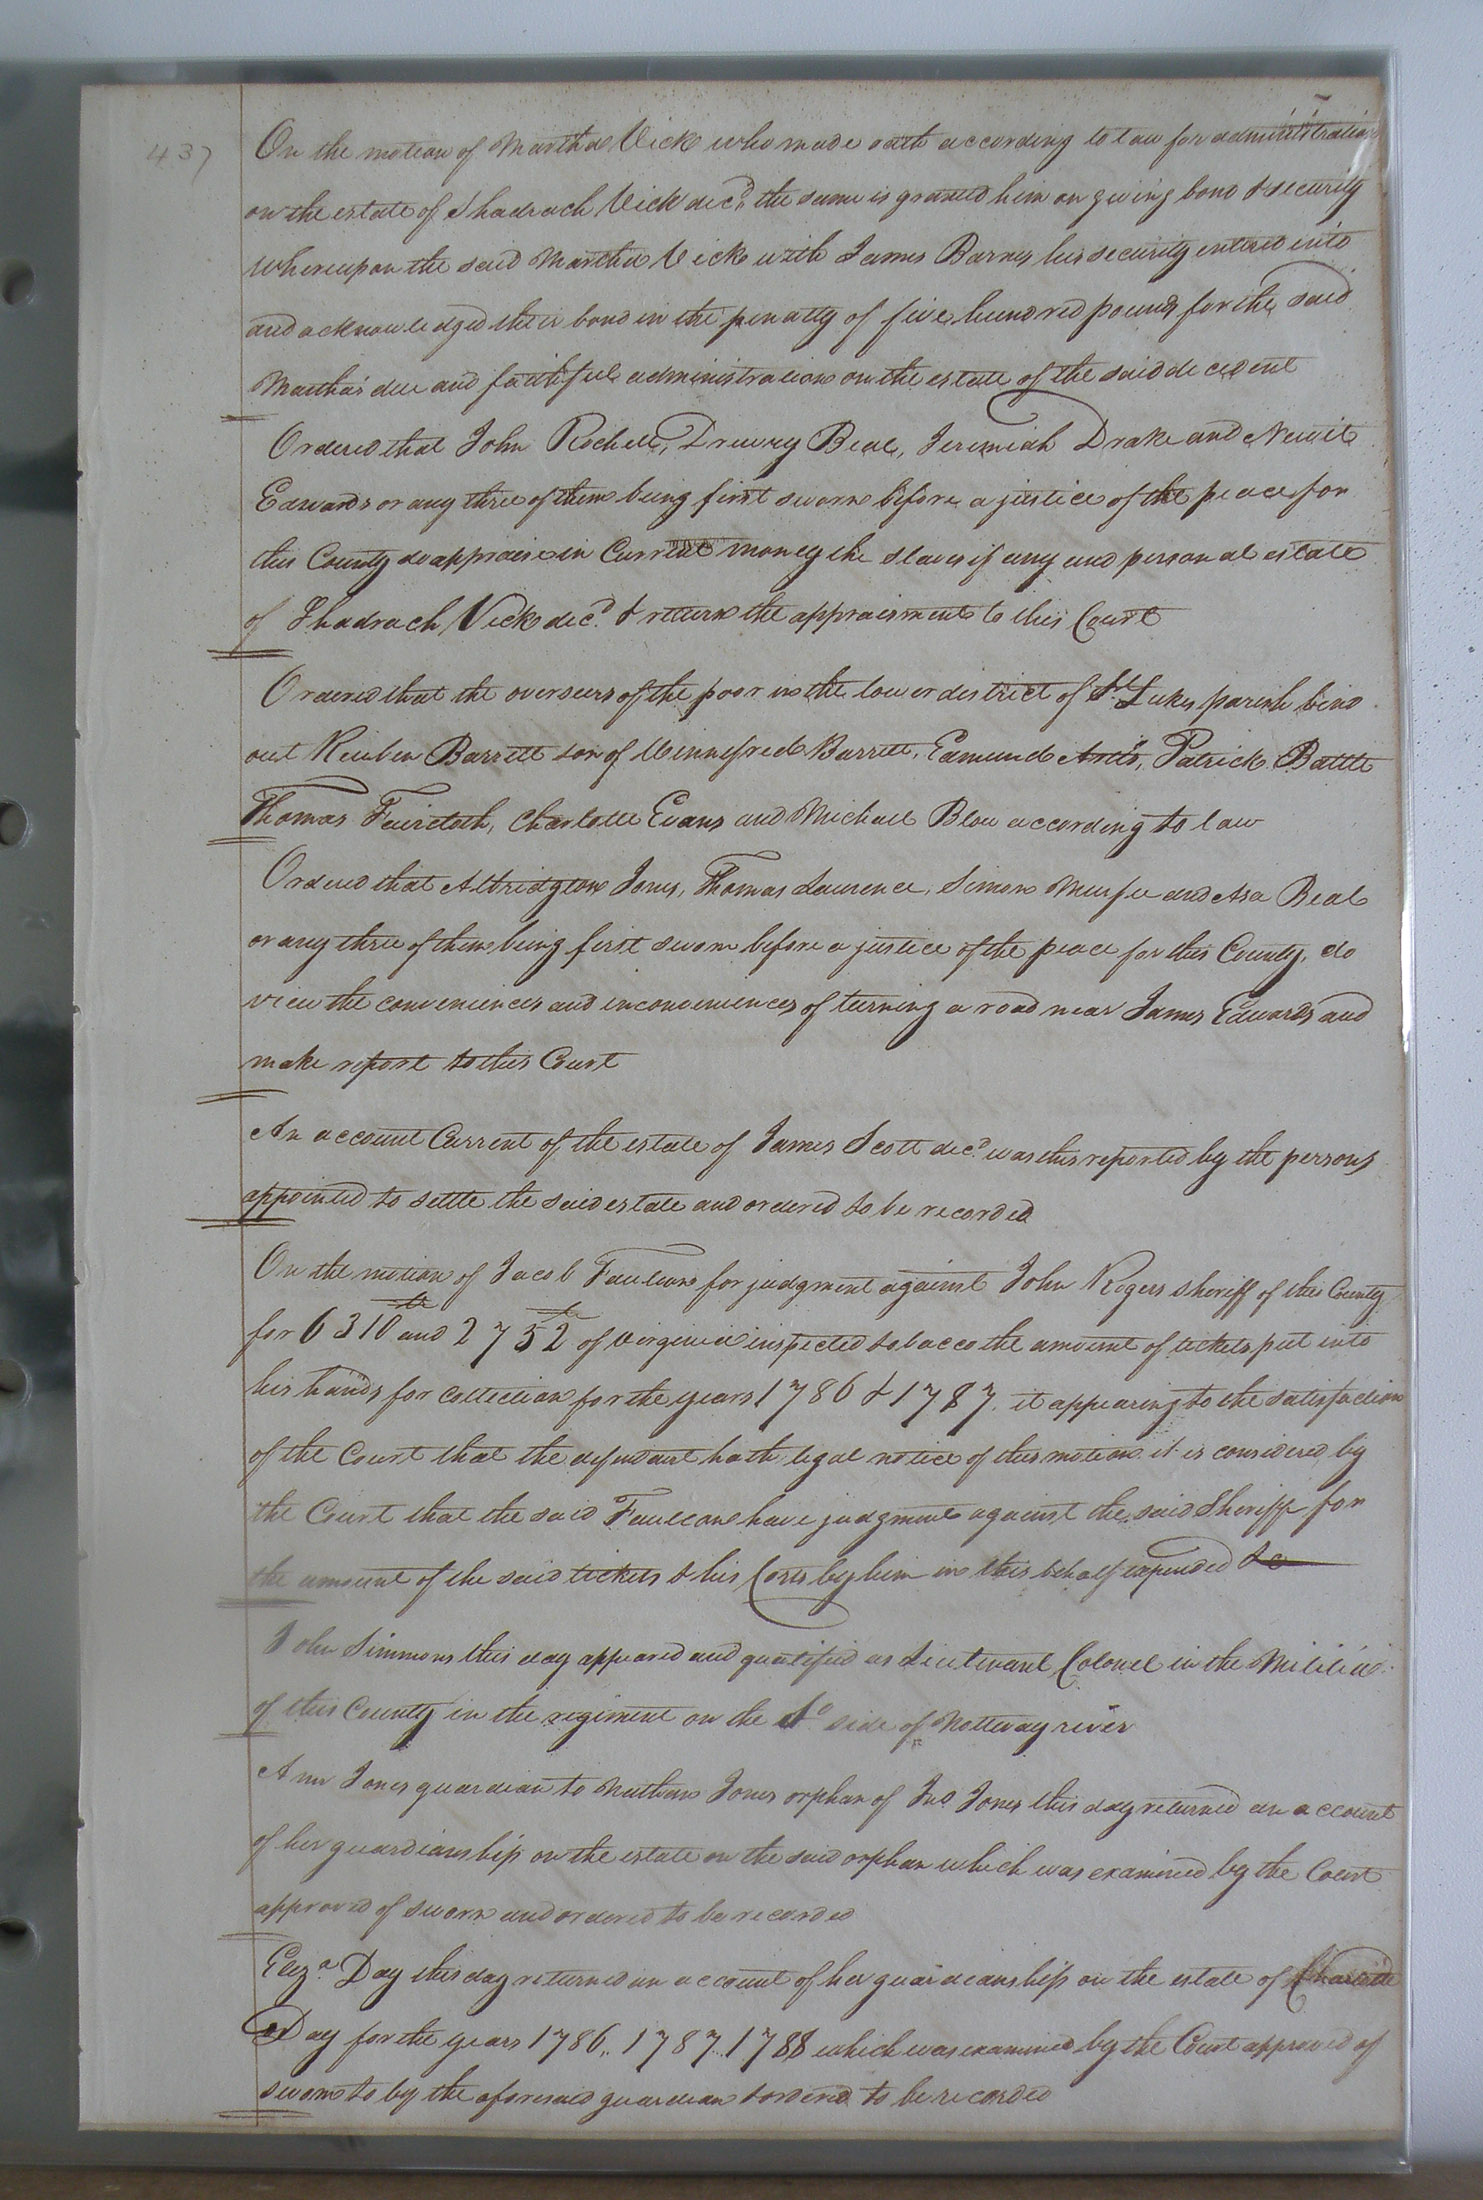 437
On the motion of Martha Vick who made oath according to law for administration
on the estate of Shadrach Vick decd. the same is granted him on giving bond & security
whereupon the said Martha Vick with James Barnes his security entered into
and acknowledged their bond in the penalty of five hundred pounds for the said
Martha's due and faithful administration on the estate of the said decedent
Ordered that John Rochell, Drewry Beal, Jeremiah Drake and Newit
Edwards or any three of them being first sworn before a justice of the peace for
this County do appraise in Current money the slaves if any and personal estate
of Shadrach Vick decd. & return the appraisment to this Court
Ordered that the overseers of the poor in the lower district of St. Lukes parish bind
out Reuben Barrett son of Winnefred Barrett, Edmund Artis, Patrick Battle
Thomas Faircloth, Charlotte Evans and Michael Blow according to law
Ordered that Albridgton Jones, Thomas Laurence, Simon Murfee and Asa Beal
or any three of them being first sworn before a justice of the peace for this County, do
view the conveniences and inconveniences of turning a road near James Edwards and
make report to this Court
An account Current of the estate of James Scott decd. was this reported by the persons
appointed to settle the said estate and ordered to be recorded
On the motion of Jacob Faulcon for judgment against John Rogers sheriff of this County
for 6310 and 2752 of virginia inspected tobacco the amount of tickets put into
his hands for collection for the years 1786 & 1787. it appearing to the satisfaction
of the Court that the defendant hath legal notice of this motion it is considered by
the Court that the said Faulcon have judgment against the said Sheriff for
the amount of the said tickets & his Costs by him in this behalf expended &c
John Simmons this day appeared and qualified as Lieutenant Colonel in the Militia
of this County in the regiment on the So side of Nottoway river
Ann Jones guardian to Mathew Jones orphan of Jno Jones this day returned an account
of her guardianship on the estate on the said orphan which was examined by the Court
approved of sworn and ordered to be recorded
Eliza Day this day returned an account of her guardianship on the estate of Charlotte
Day for the years 1786, 1787. 1788 which was examined by the Court approved of
sworn to by the aforesaid guardian & ordered to be recorded